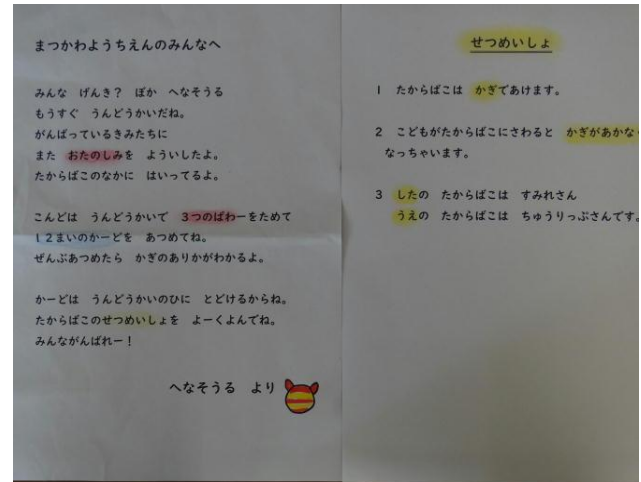 まつかわようちえんのみんなへ
みんな げんき? ぼか へなそうる
もうすぐ うんどうかいだね。
がんばっているきみたちに
また おたのしみを よういしたよ。
たからばこのなかに はいってるよ。
こんどは うんどうかいで 3つのぱわーをためて
12まいのかーどを あつめてね。
ぜんぶあつめたら かぎのありかがわかるよ。
かーどは うんどうかいのひに とどけるからね。
たからばこのせつめいしょを よーくよんでね。
みんながんばれー!
へなそうる より
せつめいしょ
1 たからばこは かぎであけます。
2 こどもがたからばこにさわると かぎがあかなく
なっちゃいます。
3 したの たからばこは すみれさん
うえの たからばこは ちゅうりっぷさんです。